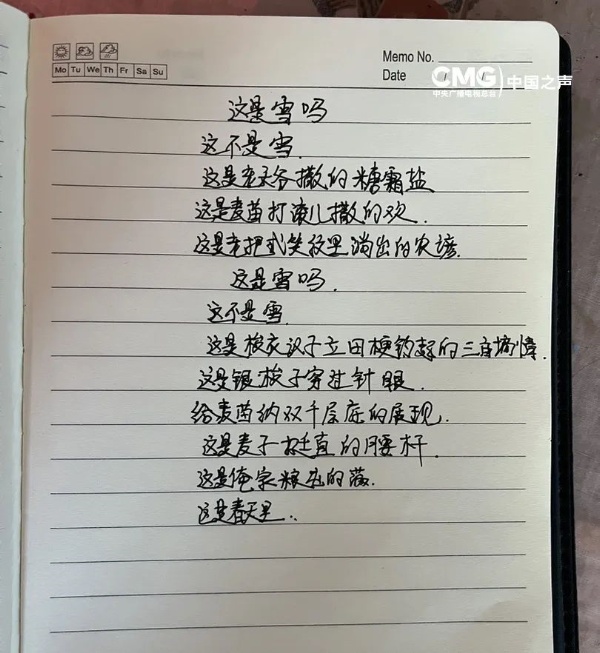 Mo Tu We Th Fr Sa Su
Memo No.
Date / /
CMG 中国之声
中央广播电视总台
这是雪吗
这不是雪.
这是老天爷撒的糖霜盐
这是麦苗打滚儿撒的欢.
这是老把式笑纹里淌出的农谚.
这是雪吗.
这不是雪
这是 汉子立田埂 的三
这是银梭子穿过针眼.
给麦苗纳双千层底的展现.
这是麦子挺直的腰杆.
这是俺家粮 的
这是春天里..